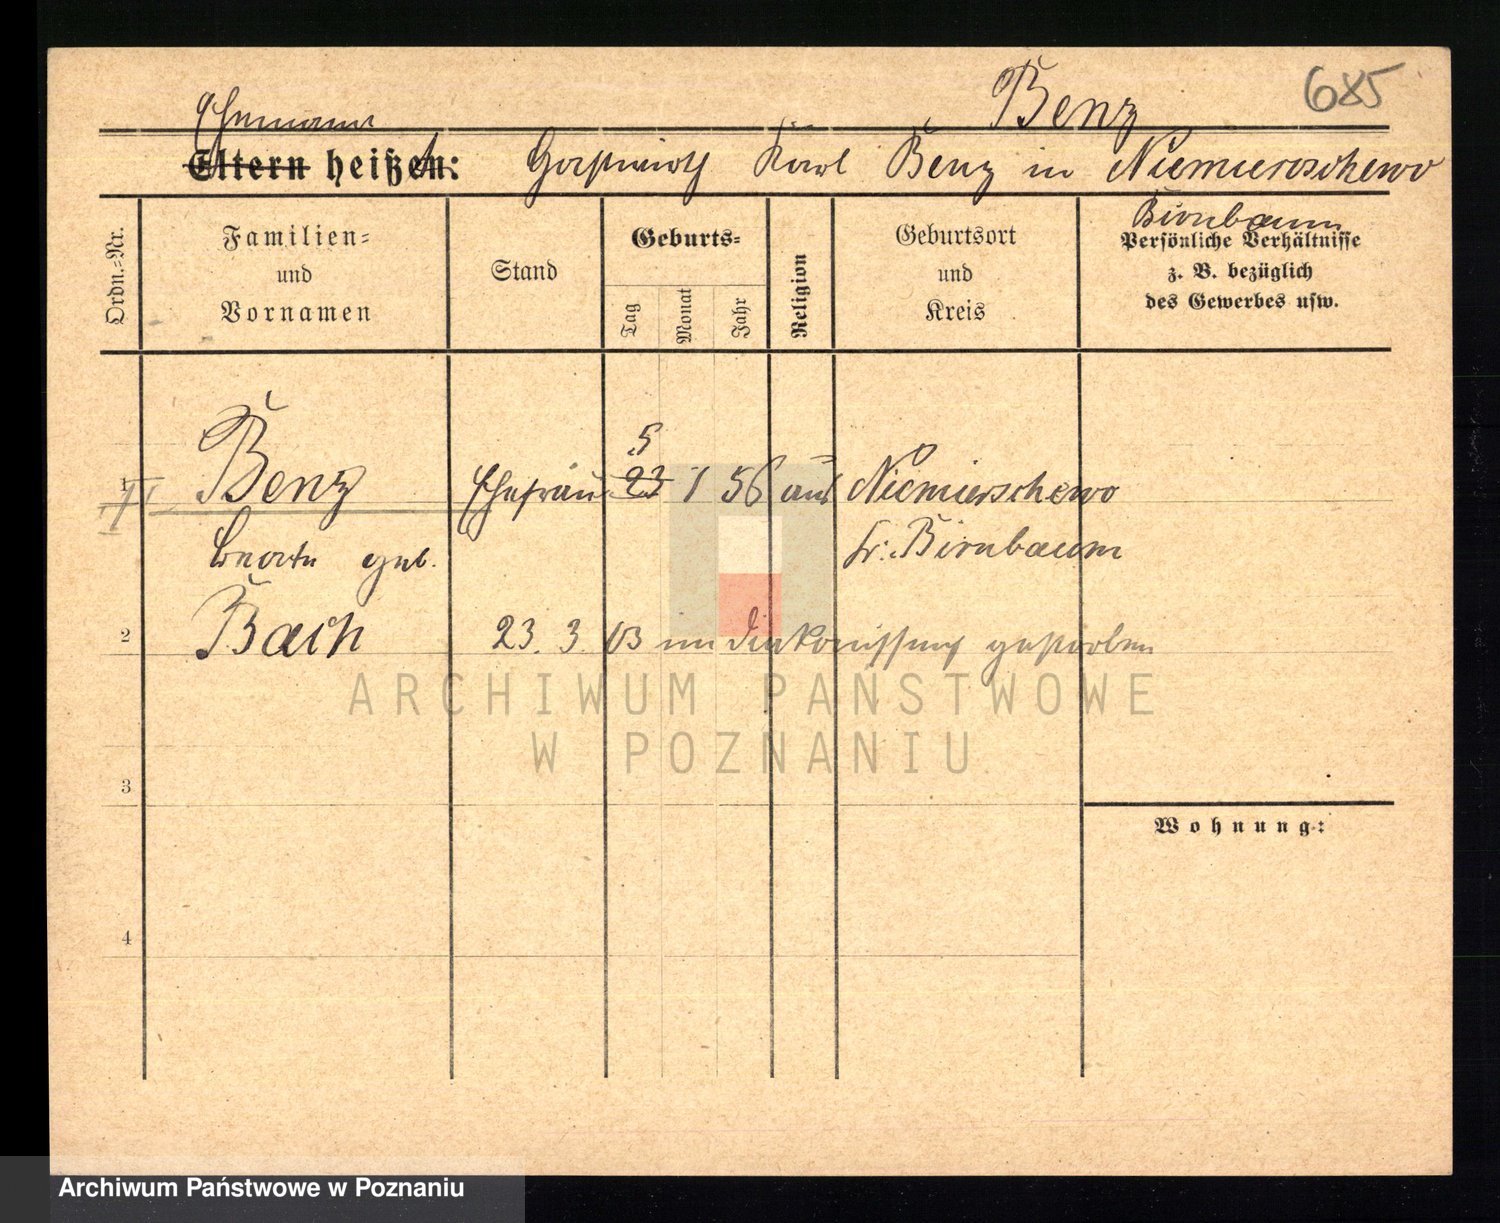 Benz 685
Ehemann
Eltern heißen: Gastwirth Karl Benz in Niemierschewo
Birnbaum
Ordn.=Nr.
Familien=
und
Vornamen
Stand
Geburts=
Tag
Monat
Jahr
Religion
Geburtsort
und
Kreis
Persönliche Verhältnisse
z. B. bezüglich
des Gewerbes usw.
5
1 Benz Ehefrau 23 1 56 aus Niemierschewo
geb. Kr. Birnbaum
2 Bach 23. 3. 03 im gestorben
3
4
Wohnung:
ARCHIWUM PAŃSTWOWE
W POZNANIU
Archiwum Państwowe w Poznaniu